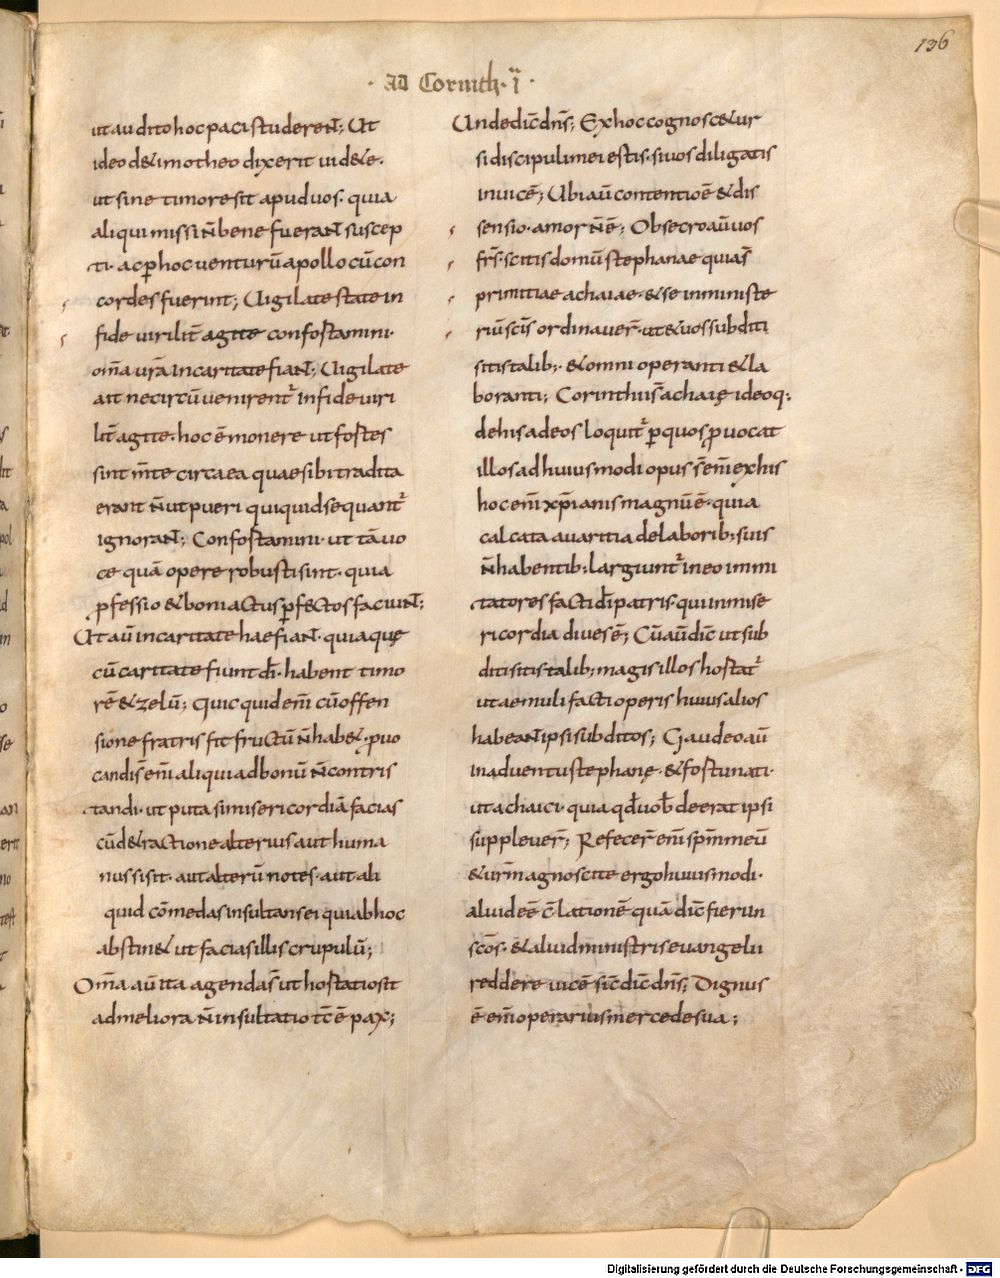 136
· AD Corinth · ii ·
ut audito hoc paci studerent; Ut
ideo de timotheo dixerit uidete.
ut sine timore sit apud uos. quia
aliqui missi n̄ bene fuerant suscep
ti. ac ꝑ hoc venturū apollo cū con
cordes fuerint; Uigilate state in
fide uirilit̄ agite confortamini.
om̄a ur̄a in caritate fiant; Uigilate
ait ne circū uenirent᷑ In fide uiri
lit̄ agite. hoc ē monere ut fortes
sint m̄te circa ea quae sibi tradita
erant n̄ ut pueri quiquid sequant᷑
ignorant; Confortamini. ut tā uo
ce quā opere robusti sint. quia
ꝓfessio & boni actus ꝑfectos faciunt;
Ut aū in caritate haec fiant. quia quę
cū caritate fiunt dī. habent timo
rē & zelū; Quicquid enī cū offen
sione fratris fit fructū n̄ hab&. ꝓuo
candis enī aliqui ad bonū n̄ contris
tandi. ut puta si misericordiā facias
cū detractione alterius aut huma
nus si sit. aut alterū notes. aut ali
quid cōmedas insultans ei qui ab hoc
abstin& ut facias illi scrupulū;
Om̄a aū ita agenda s̄ ut hortatio sit
ad meliora n̄ insultatio tc̄ ē pax;
Unde dic̄ dn̄s; Ex hoc cognoscetur
si discipuli mei estis. si uos diligatis
inuicē; Ubi aū contentio ē & dis
sensio. amor n̄ ē; Obsecro aū uos
frs̄. scitis domū stephanae quia s̄
primitiae achaiae. & se in ministe
riū scīs ordinauer̄. ut & uos subditi
sitis talib;. & omni operanti & la
boranti; Corinthii s̄ achaię ideoq;
de his ad eos loquit᷑ ꝑ quos ꝓuocat
illos ad huius modi opus s enī ex his
hoc enī xp̄ianis magnū ē. quia
calcata auaritia de laborib; suis
n̄ habentib; largiunt᷑ in eo immi
tatores facti dī patris. qui in mise
ricordia diues ē; Cū aū dic̄ ut sub
diti sitis talib; magis illos hortat᷑
ut aemuli facti operis huius alios
habeant ipsi subditos; Gaudeo aū
in aduentu stephanę. & fortunati.
ut achaici. quia qđ uob̄ deerat ipsi
suppleuer̄; Refecer̄ enī spm̄ meū
& ur̄m agnoscite ergo huius modi.
aliud eē c̄lationē quā dic̄ fieri in
scōs. & aliud ministris euangelii
reddere uicē sic̄ dic̄ dn̄s; Dignus
ē enī operarius mercede sua;
Digitalisierung gefördert durch die Deutsche Forschungsgemeinschaft - DFG